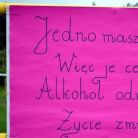 Jedno masz
Więc je ce
Alkohol od
Życie zm